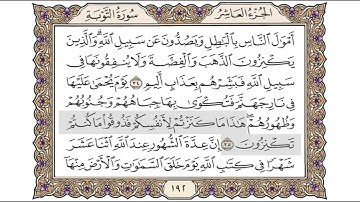 الجزء العاشر
سورة التوبة
أَمْوَالَ النَّاسِ بِالْبَاطِلِ وَيَصُدُّونَ عَن سَبِيلِ اللَّهِ وَالَّذِينَ
يَكْنِزُونَ الذَّهَبَ وَالْفِضَّةَ وَلَا يُنفِقُونَهَا فِي
سَبِيلِ اللَّهِ فَبَشِّرْهُم بِعَذَابٍ أَلِيمٍ ٣٤ يَوْمَ يُحْمَىٰ عَلَيْهَا
فِي نَارِ جَهَنَّمَ فَتُكْوَىٰ بِهَا جِبَاهُهُمْ وَجُنُوبُهُمْ
وَظُهُورُهُمْ هَٰذَا مَا كَنَزْتُمْ لِأَنفُسِكُمْ فَذُوقُوا مَا كُنتُمْ
تَكْنِزُونَ ٣٥ إِنَّ عِدَّةَ الشُّهُورِ عِندَ اللَّهِ اثْنَا عَشَرَ
شَهْرًا فِي كِتَابِ اللَّهِ يَوْمَ خَلَقَ السَّمَاوَاتِ وَالْأَرْضَ مِنْهَا
١٩٢